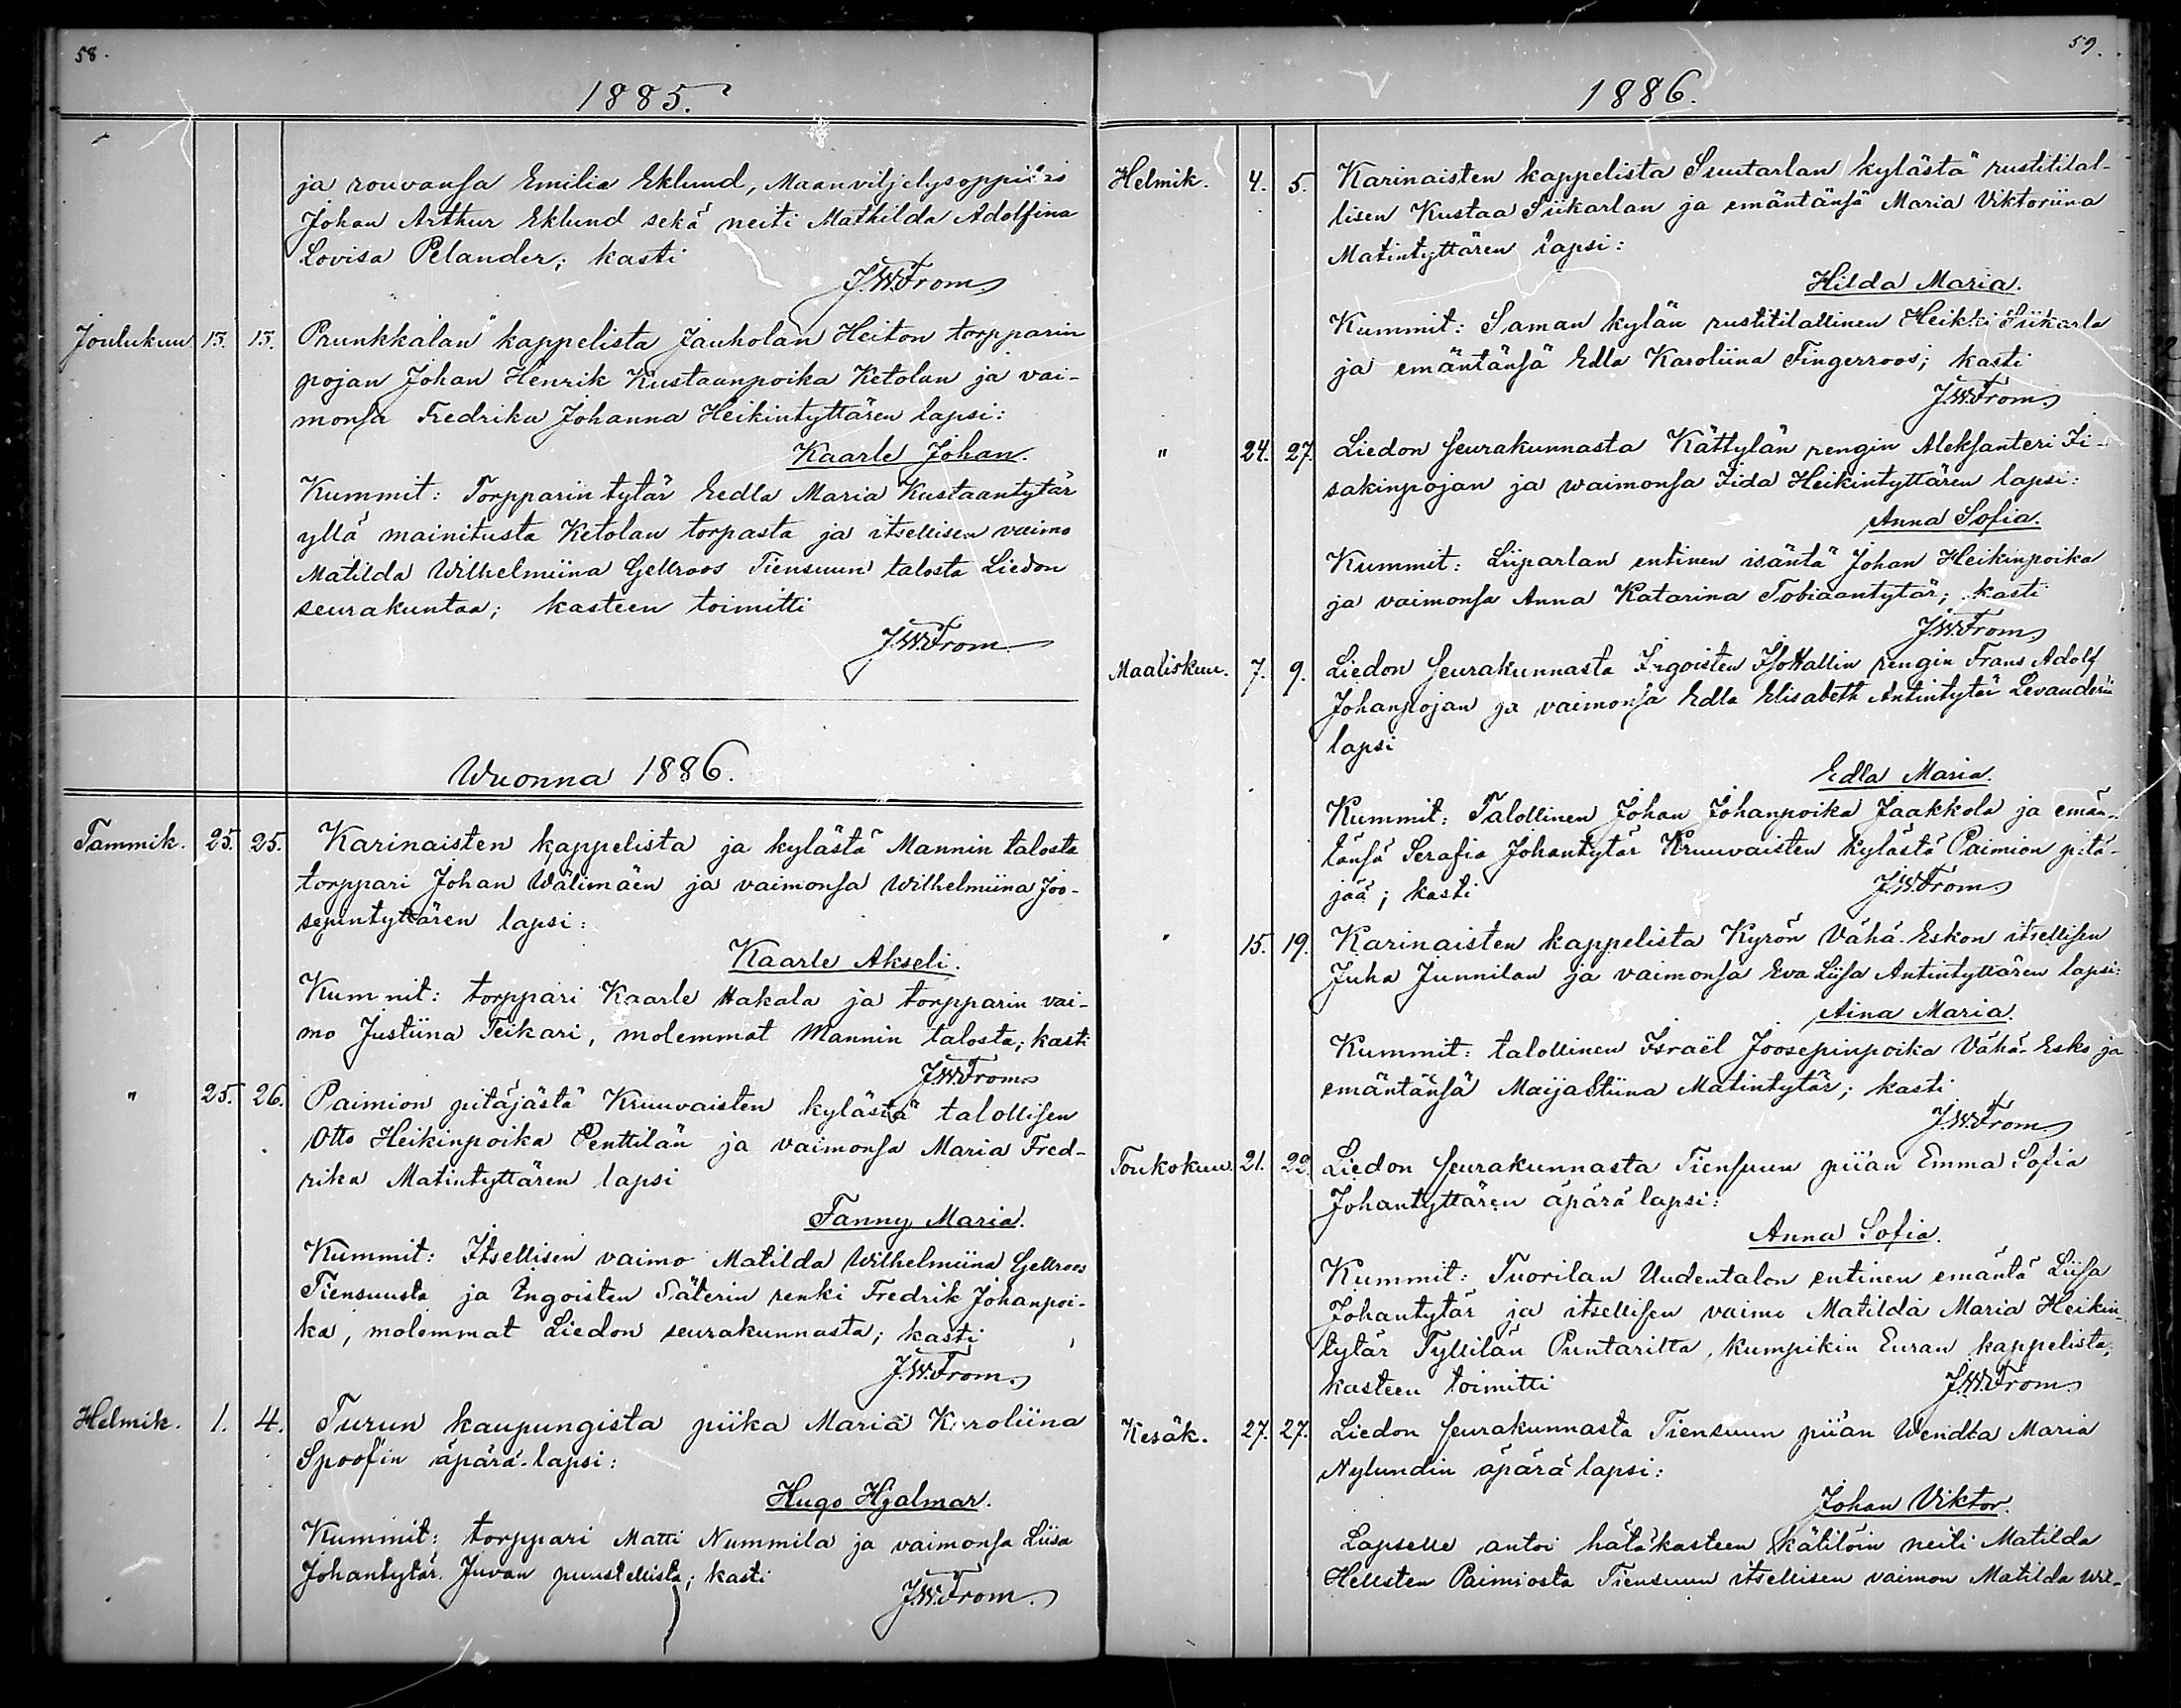 58.
1885.
ja rouvansa Emilia Eklund, Maanviljelysoppilas
Johan Arthur Eklund sekä neiti Mathilda Adolfina
Lovisa Pelander; kasti
J.W.From.
Joulukuu 15. 15. Prunkkalan kappelista Jauholan Heiton torpparin
pojan Johan Henrik Kustaanpoika Ketolan ja vai-
monsa Fredrika Johanna Heikintyttären lapsi:
Kaarle Johan.
Kummit: Torpparin tytär Eedla Maria Kustaantytär
yllä mainitusta Ketolan torpasta ja itsellisen vaimo
Matilda Wilhelmiina Gellroos Tiensuun talosta Liedon
seurakuntaa; kasteen toimitti
J.W.From
Wuonna 1886.
Tammik. 25. 25. Karinaisten kappelista ja kylästä Mannin talosta
torppari Johan Wälimäen ja vaimonsa Wilhelmiina Joo-
sepintyttären lapsi:
Kaarle Akseli.
Kummit: torppari Kaarle Hakala ja torpparin vai-
mo Justiina Teikari, molemmat Mannin talosta; kasti
J.W.From.
" 25. 26. Paimion pitäjästä Kruuvaisten kylästä talollisen
Otto Heikinpoika Penttilän ja vaimonsa Maria Fred-
rika Matintyttären lapsi
Fanny Maria.
Kummit: Itsellisen vaimo Matilda Wilhelmiina Gellroos
Tiensuusta ja Ingoisten Säterin renki Fredrik Johanpoi-
ka, molemmat Liedon seurakunnasta; kasti
J.W.From.
Helmik. 1. 4. Turun kaupungista piika Maria Karoliina
Spoof'in äpärä-lapsi:
Hugo Hjalmar.
Kummit: torppari Matti Nummila ja vaimonsa Liisa
Johantytär Juvan puustellista; kasti
J.W.From.
59.
1886.
Helmik. 4. 5. Karinaisten kappelista Suutarlan kylästä rustitilal-
lisen Kustaa Siikarlan ja emäntänsä Maria Viktoriina
Matintyttären lapsi:
Hilda Maria.
Kummit: Saman kylän rustitilallinen Heikki Siikarla
ja emäntänsä Edla Karoliina Fingerroos; kasti
J.W.From.
" 24. 27. Liedon seurakunnasta Kättylän rengin Aleksanteri Ii-
sakinpojan ja waimonsa Iida Heikintyttären lapsi:
Anna Sofia.
Kummit: Liiparlan entinen isäntä Johan Heikinpoika
ja vaimonsa Anna Katarina Tobiaantytär; kasti
J.W.From.
Maaliskuu. 7. 9. Liedon seurakunnasta Ingoisten Isotallin rengin Frans Adolf
Johanpojan ja vaimonsa Edla Elisabeth Antintytär Levanderin
lapsi
Edla Maria.
Kummit: Talollinen Johan Johanpoika Jaakkola ja emän-
tänsä Serafia Johantytär Kruuvaisten kylästä Paimion pitä-
jää; kasti
J.W.From.
" 15. 19. Karinaisten kappelista Kyrön Vähä-Eskon itsellisen
Juha Junnilan ja vaimonsa Eva Liisa Antintyttären lapsi:
Aina Maria.
Kummit: talollinen Israël Joosepinpoika Vähä-Esko ja
emäntänsä Maija Stiina Matintytär; kasti
J.W.From.
Toukokuu. 21. 22. Liedon seurakunnasta Tiensuun piian Emma Sofia
Johantyttären äpärä lapsi:
Anna Sofia.
Kummit: Tuorilan Uudentalon entinen emäntä Liisa
Johantytär ja itsellisen vaimo Matilda Maria Heikin-
tytär Tyllilän Puntarilta, kumpikin Euran kappelista;
kasteen toimitti
J.W.From.
Kesäk. 27. 27. Liedon seurakunnasta Tiensuun piian Wendla Maria
Nylundin äpärä lapsi:
Johan Viktor.
Lapselle antoi hätäkasteen kätilöin neiti Matilda
Hellsten Paimiosta Tiensuun itsellisen vaimon Matilda Wil-